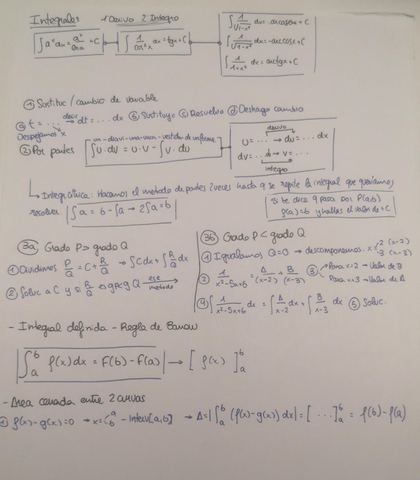 Integrales 1 Derivo 2 Integro
∫a^x dx = a^x/ln a + C
∫ 1/cos²x dx = tgx + C
∫ 1/√1-x² dx = arcsenx + C
∫ -1/√1-x² dx = arccosx + C
∫ 1/1+x² dx = arctgx + C
① Sustituc / cambio de variable
ⓐ t = ... deriv → dt = ... dx ⓑ Sustituyo ⓒ Resuelvo ⓓ Deshago cambio
Despejamos x
② Por partes ∫u·dv = u·v - ∫v·du
un-dia-vi-una-vaca-vestida de uniforme
derivo
u = ... → du = ... dx
dv = ... → v = ...
integro
↳ Integ cíclica. Hacemos el metodo de partes 2 veces hasta q se repite la integral que queríamos
resolver ∫a = b - ∫a → 2∫a = b
si te dice q pasa por P(a,b)
f(a) = b y hallas el valor de C
3a Grado P > grado Q
① Dividimos P/Q = C + R/Q → ∫C dx + ∫R/Q dx
② Solve a C y si R/Q es gP<gQ ese metodo
3b Grado P < grado Q
① Igualamos Q=0 → descomponemos x = 2 (x-2)
3 (x-3)
② 1/x²-5x+6 = A/(x-2) + B/(x-3) ③ Para x=2 → Valor de B
Para x=3 → Valor de A
④ ∫ 1/x²-5x+6 dx = ∫ A/x-2 dx + ∫ B/x-3 dx ⑤ Solve.
- Integral definida - Regla de Barrow
∫ₐᵇ f(x) dx = F(b) - F(a) → [ f(x) ]ₐᵇ
- Area cerrada entre 2 curvas
① f(x) - g(x) = 0 → x = a b - Interv [a,b] → A = |∫ₐᵇ (f(x) - g(x)) dx| = [ ... ]ₐᵇ = f(b) - f(a)